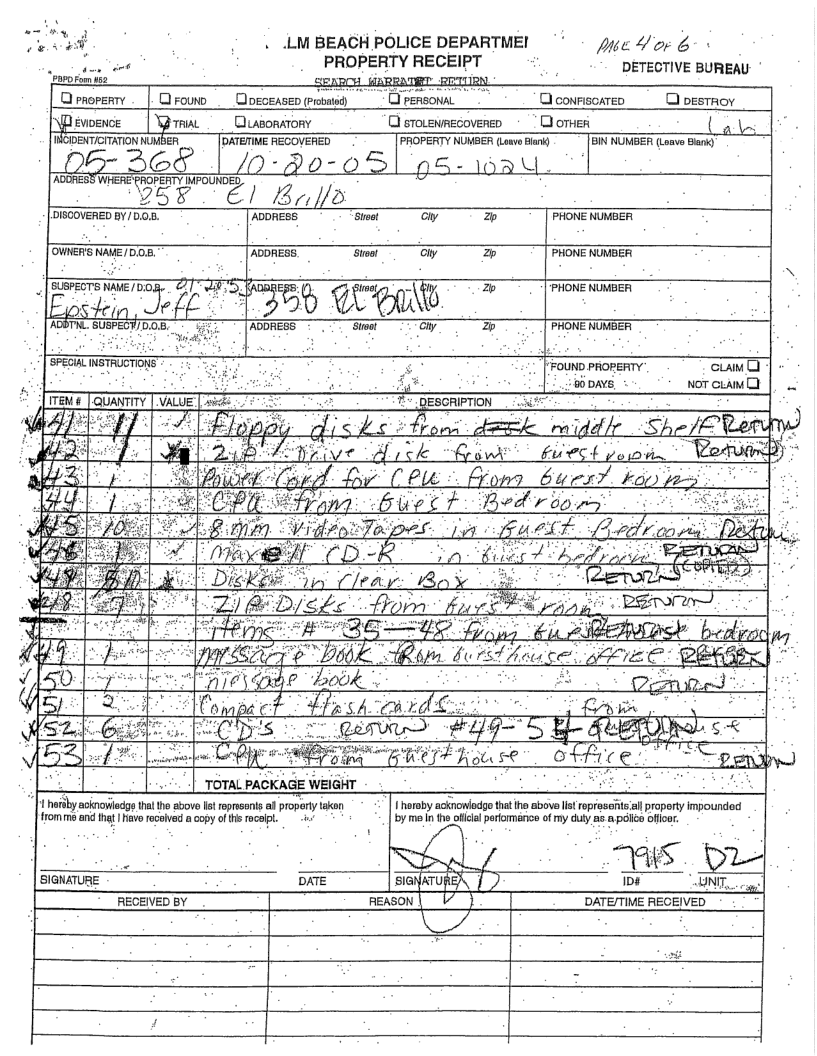 .LM BEACH POLICE DEPARTMEI
PAGE 4 OF 6
PROPERTY RECEIPT
DETECTIVE BUREAU
PBPD Form #52
SEARCH WARRATNT RETURN
PROPERTY FOUND DECEASED (Probated) PERSONAL CONFISCATED DESTROY
EVIDENCE TRIAL LABORATORY STOLEN/RECOVERED OTHER Lab
INCIDENT/CITATION NUMBER DATE/TIME RECOVERED PROPERTY NUMBER (Leave Blank) BIN NUMBER (Leave Blank)
05-368 10-20-05 05-1024
ADDRESS WHERE PROPERTY IMPOUNDED
358 El Brillo
DISCOVERED BY / D.O.B. ADDRESS Street City Zip PHONE NUMBER
OWNER'S NAME / D.O.B. ADDRESS Street City Zip PHONE NUMBER
SUSPECT'S NAME / D.O.B. 01-20-53 ADDRESS Street City Zip PHONE NUMBER
Epstein, Jeff 358 El Brillo
ADDT'NL. SUSPECT / D.O.B. ADDRESS Street City Zip PHONE NUMBER
SPECIAL INSTRUCTIONS FOUND PROPERTY CLAIM
90 DAYS NOT CLAIM
ITEM # QUANTITY VALUE DESCRIPTION
41 11 Floppy disks from desk middle Shelf Return
42 1 Zip Drive disk from Guest room Return
43 1 Power Cord for CPU from Guest room
44 1 CPU from Guest Bedroom
45 10 8mm video Tapes in Guest Bedroom Return
46 1 Maxell CD-R in Guest bedroom RETURN (COPIED)
Disks in Clear Box RETURN
48 7 ZIP Disks from Guest room RETURN
items # 35-48 from Guest bedroom
49 1 message book from Guesthouse office RETURN
50 1 message book RETURN
51 2 Compact flash cards from
52 6 CD's Return #49-54 Guesthouse office
53 1 CPU from Guesthouse office RETURN
TOTAL PACKAGE WEIGHT
I hereby acknowledge that the above list represents all property taken
from me and that I have received a copy of this receipt.
I hereby acknowledge that the above list represents all property impounded
by me in the official performance of my duty as a police officer.
7915 D2
SIGNATURE DATE SIGNATURE ID# UNIT
RECEIVED BY REASON DATE/TIME RECEIVED